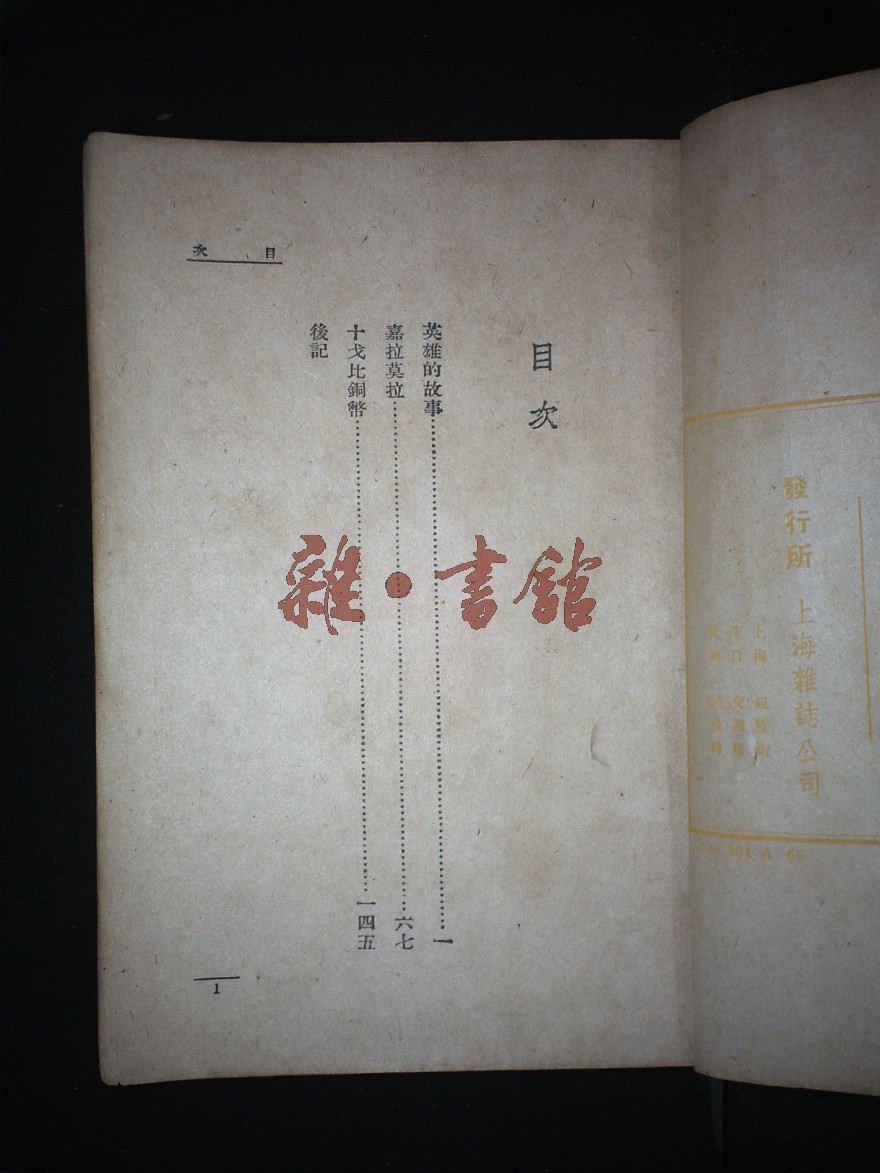 發行所　上海雜誌公司
上海
目次
目次
英雄的故事……一
嘉拉莫拉……六七
十戈比銅幣……一四五
後記
1
雜・書館